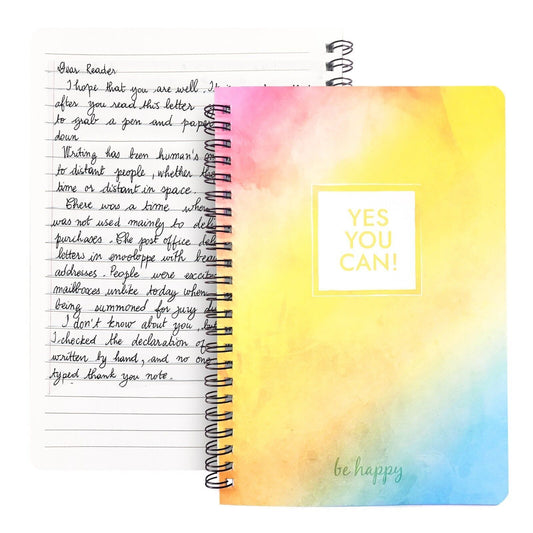 Dear Reader
I hope that you are well.
after you read this letter
to grab a pen and pape
down
Writing has been human's
to distant people, whether
time or distant in space.
There was a time whe
was not used mainly to del
purchases. The post office del
letters in enveloppe with beau
addresses. People were excite
mailboxes unlike today when
being summoned for jury du
I don't know about you, but
I checked the declaration of
written by hand, and no one
typed thank you note.
YES
YOU
CAN!
be happy